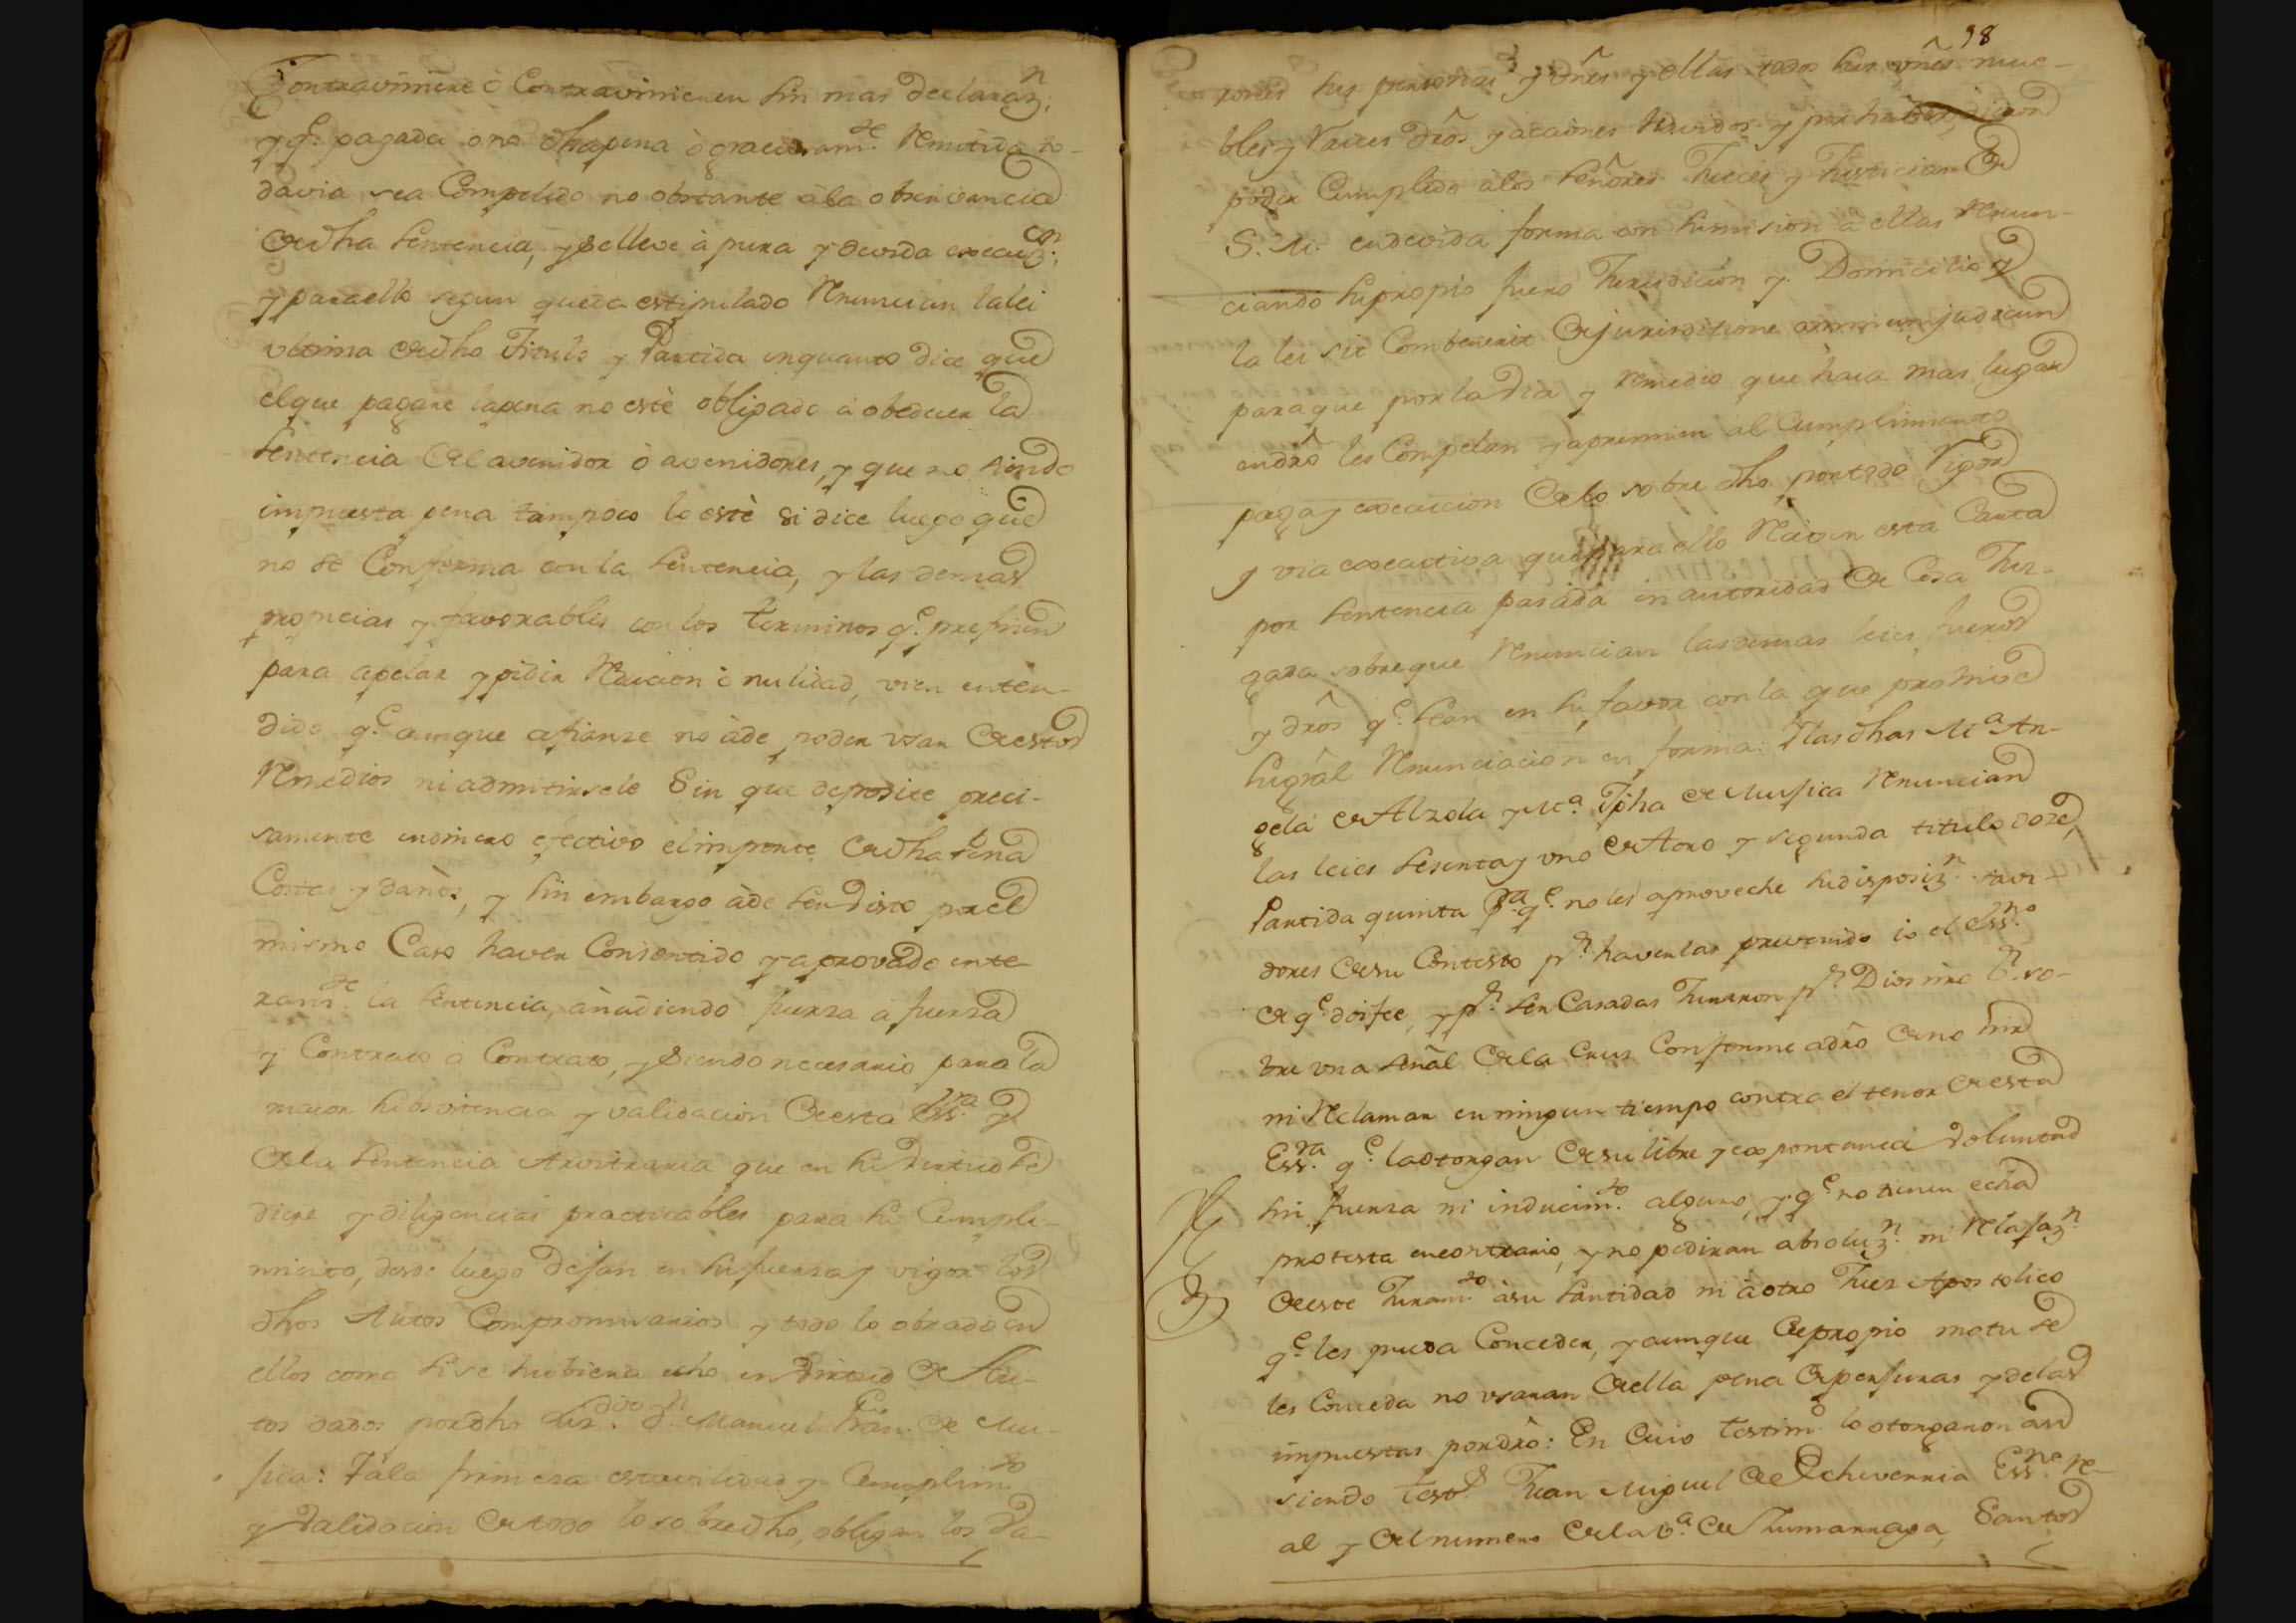 Contraviniere ò Contravinieren sin mas declaraz.n
y q.e pagada o no dha pena ò graciosam.te Remitida to-
davia sea Compelido no obstante à la obserbancia
de dha sentencia, y se lleve à pura y devida execuz.on
y para ello segun queda estipulado Renuncian la lei
ultima de dho Titulo y Partida en quanto dice que
el que pagare la pena no estè obligado à obedecer la
sentencia del avenidor ò avenidores, y que no siendo
impuesta pena tampoco lo estè si dice luego que
no se Conforma con la sentencia, y las demas
propicias y favorables con los terminos q.e prefinen
para apelar y pidir Reduccion ò nulidad, vien enten-
dido q.e aunque afianze no àde poder usar de estos
Remedios ni admitirsele sin que deposite preci-
samente en dinero efectivo el importe de dha pena
Costas y daños, y sin embargo àde ser visto por el
mismo Caso haver Consentido y aprovado ente-
ram.te la sentencia, añadiendo fuerza à fuerza
y Contrato à Contrato, y siendo necesario para la
maior subsistencia y validacion de esta Ess.ra y
de la sentencia Arvitraria que en su virtud se
diere y diligencias practicables para su Cumpli-
miento, desde luego dejan en su fuerza y vigor los
dhos Autos Compromisarios y todo lo obrado en
ellos como si se hubiera echo en virtud de Au-
tos dados por dho Liz.do d.n Manuel Fran.co de Mu-
jica: Y à la firmeza estavilidad y Cumplim.to
y validacion de todo lo sobredho, obligan los va-
98
rones sus personas y vñes y ellas todos sus vñes mue-
bles y Raices dr̃os y aciones havidos y por haber, dieron
poder Cumplido a los señores Jueces y Justicias de
S. M. en devida forma con sumision à ellas Renun-
ciando su propio fuero Jurisdicion y Domicilio y
la lei sit Combenerit de jurisditione omnium judicum
para que por la via y Remedio que haia mas lugar
en dr̃o les Compelan y apremien al Cumplimiento
paga y execucion de lo sobre dho por todo Rigor
y via executiva que para ello Reciven esta Carta
por sentencia pasada en autoridad de Cosa Juz-
gada sobre que Renuncian las demas leies fueros
y dr̃os q.e sean en su favor con la que prohive
su gral Renunciacion en forma: Y las dhas M.a An-
gela de Alzola y M.a Jpha de Mujica Renuncian
las leies sesenta y una de Toro y segunda titulo doze,
Partida quinta p.a q.e no les aproveche su disposiz.n savi-
dores de su Contesto p.r haverlas prevenido io el Ess.no
de q.e doi fee, y p.r ser Casadas Juraron p.r Dios nro S.r so-
bre una señal de la Cruz Conforme a dr̃o de no hir
ni Reclamar en ningun tiempo contra el tenor de esta
Ess.ra q.e la otorgan de su libre y expontanea voluntad
sin fuerza ni inducim.to alguno, y q.e no tienen echa
protesta en contrario, y no pediran absoluz.n ni Relajaz.n
de este Juram.to à su Santidad ni à otro Juez Apostolico
q.e les pueda Conceder, y aunque de propio motu se
les Conceda no usaran de ella pena de perjuras y de las
impuestas por dr̃o: En Cuio testim.o lo otorgaron asi
siendo test.s Juan Miguel de Echeverria Ess.no Re-
al y del numero de la v.a de Zumarraga, Santos